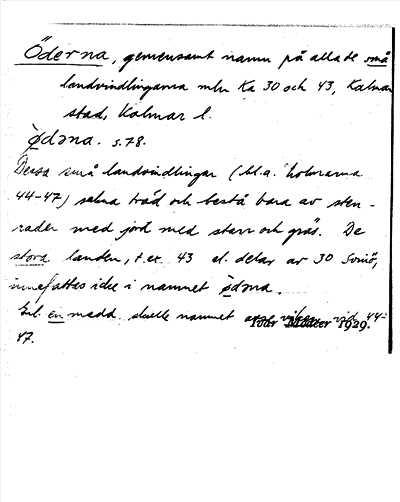 Öderna, gemensamt namn på alla de små
landvindlingarna mln Ka 30 och 43, Kalmar
stad, Kalmar l.
ödəna. s. 78.
Dessa små landvindlingar (bl.a. holmarna
44-47) sakna träd och bestå bara av sten-
rader med jord med starr och gräs. De
stora landen, t.ex. 43 el. delar av 30 Svinö,
innefattas icke i namnet ödəna.
Enl. en madd. skulle namnet vid 44-
47.
Ivar Modéer 1929.